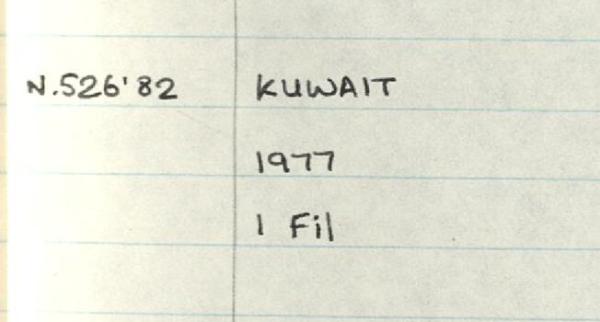 N.526'82 KUWAIT
1977
1 Fil